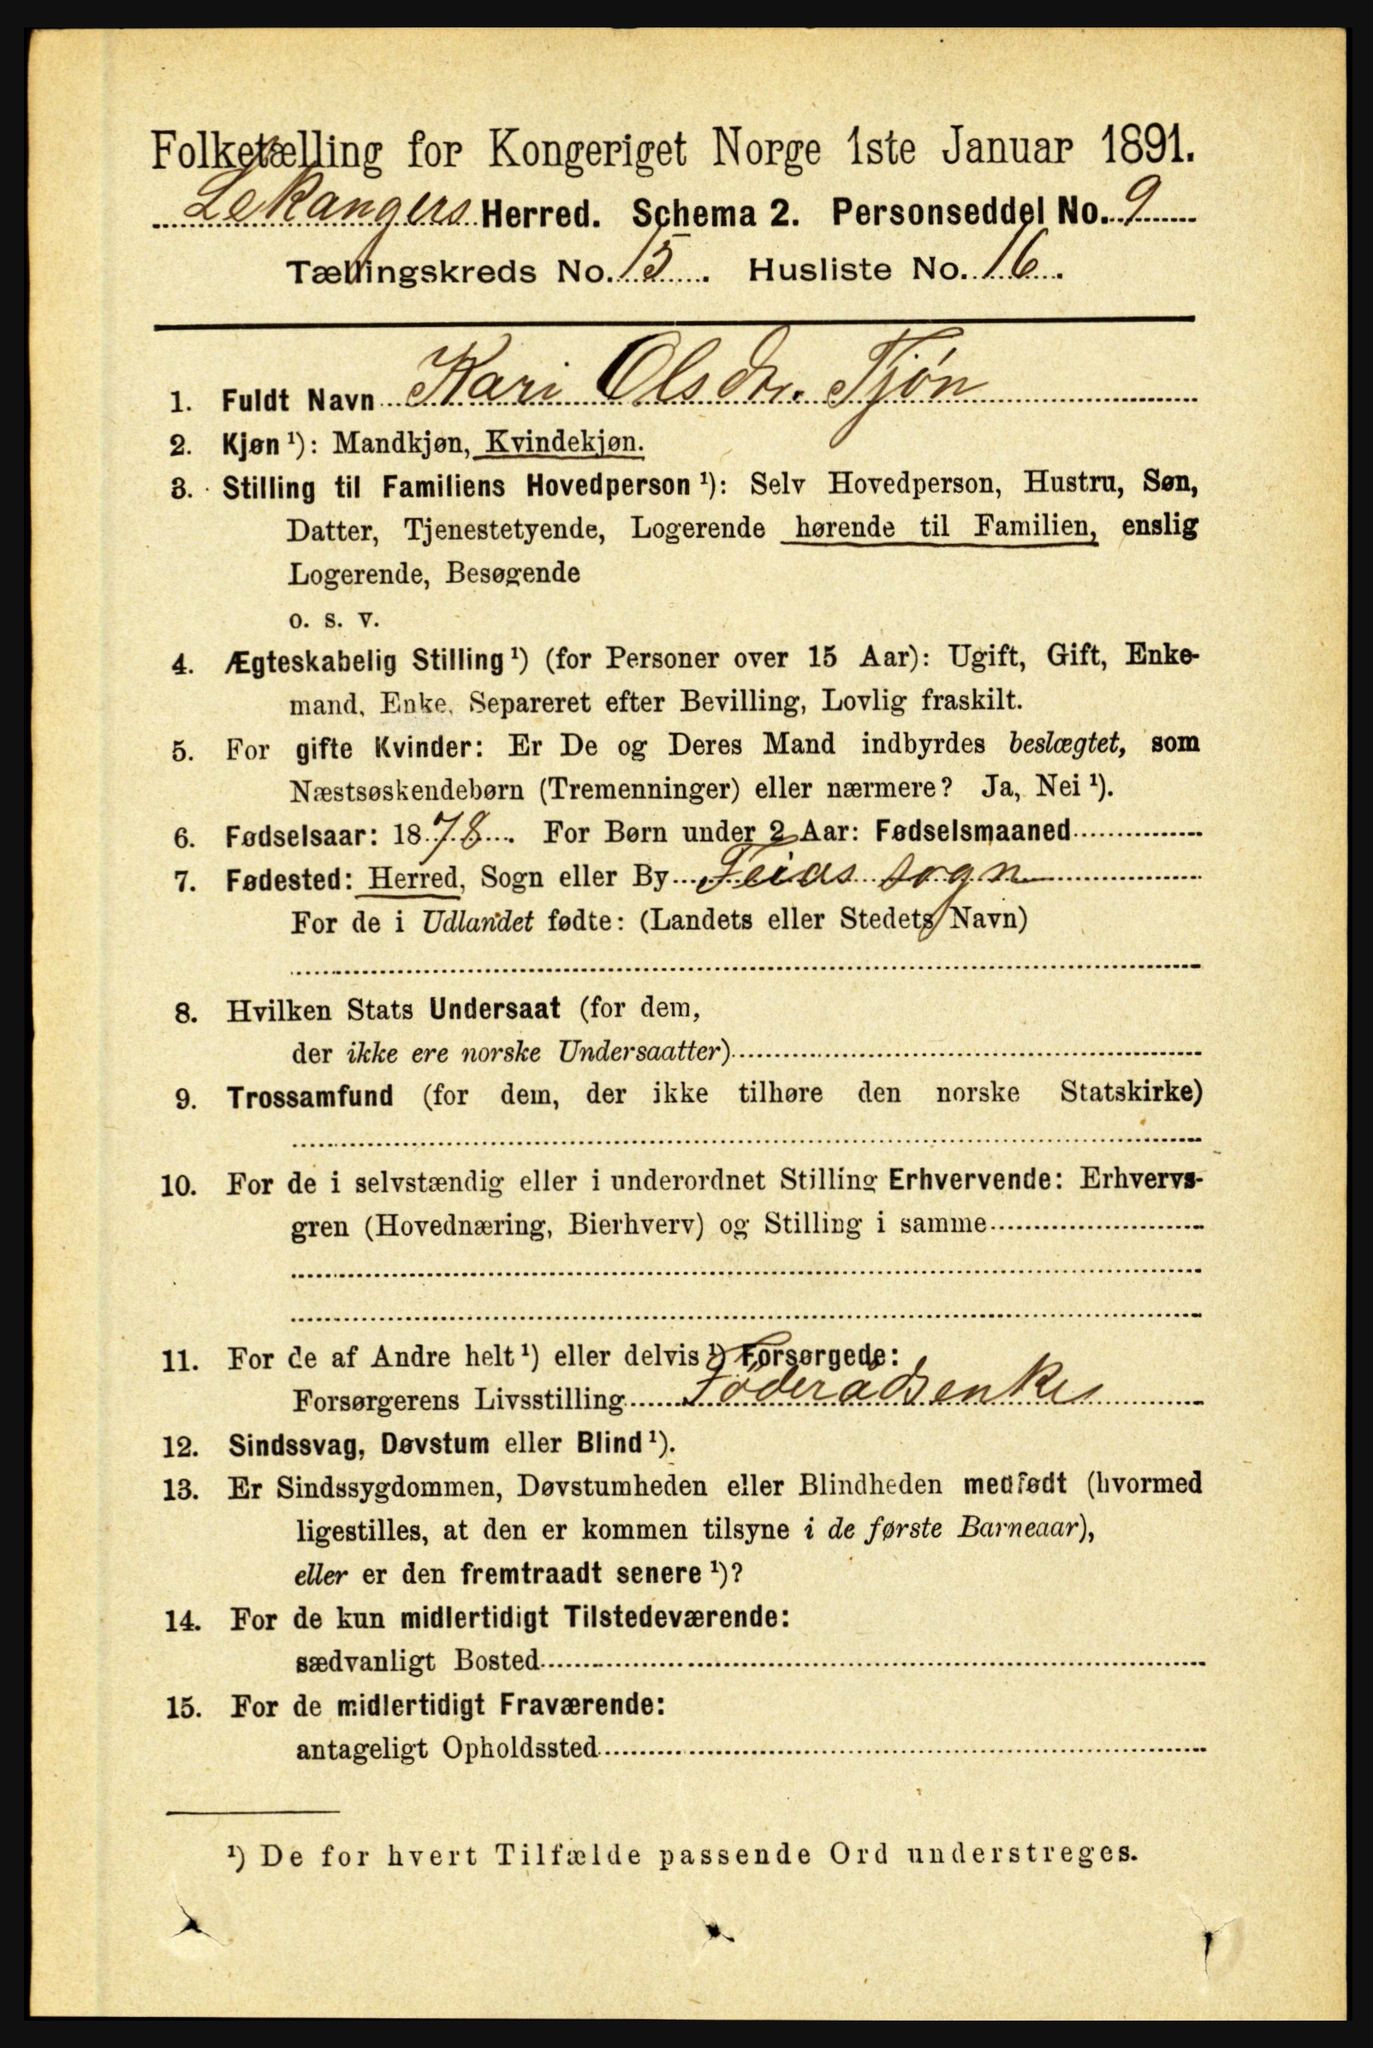 Folketælling for Kongeriget Norge 1ste Januar 1891.
Lekangers Herred. Schema 2. Personseddel No. 9
Tællingskreds No. 15. Husliste No. 16.
1. Fuldt Navn Kari Olsdr. Tjøn
2. Kjøn ¹): Mandkjøn, Kvindekjøn.
3. Stilling til Familiens Hovedperson ¹): Selv Hovedperson, Hustru, Søn,
Datter, Tjenestetyende, Logerende hørende til Familien, enslig
Logerende, Besøgende
o. s. v.
4. Ægteskabelig Stilling ¹) (for Personer over 15 Aar): Ugift, Gift, Enke-
mand, Enke, Separeret efter Bevilling, Lovlig fraskilt.
5. For gifte Kvinder: Er De og Deres Mand indbyrdes beslægtet, som
Næstsøskendebørn (Tremenninger) eller nærmere? Ja, Nei ¹).
6. Fødselsaar: 1878. For Børn under 2 Aar: Fødselsmaaned
7. Fødested: Herred, Sogn eller By Feios sogn
For de i Udlandet fødte: (Landets eller Stedets Navn)
8. Hvilken Stats Undersaat (for dem,
der ikke ere norske Undersaatter)
9. Trossamfund (for dem, der ikke tilhøre den norske Statskirke)
10. For de i selvstændig eller i underordnet Stilling Erhvervende: Erhvervs-
gren (Hovednæring, Bierhverv) og Stilling i samme
11. For de af Andre helt ¹) eller delvis ¹) Forsørgede:
Forsørgerens Livsstilling Föderådsenke
12. Sindssvag, Døvstum eller Blind ¹).
13. Er Sindssygdommen, Døvstumheden eller Blindheden medfødt (hvormed
ligestilles, at den er kommen tilsyne i de første Barneaar),
eller er den fremtraadt senere ¹)?
14. For de kun midlertidigt Tilstedeværende:
sædvanligt Bosted
15. For de midlertidigt Fraværende:
antageligt Opholdssted
¹) De for hvert Tilfælde passende Ord understreges.